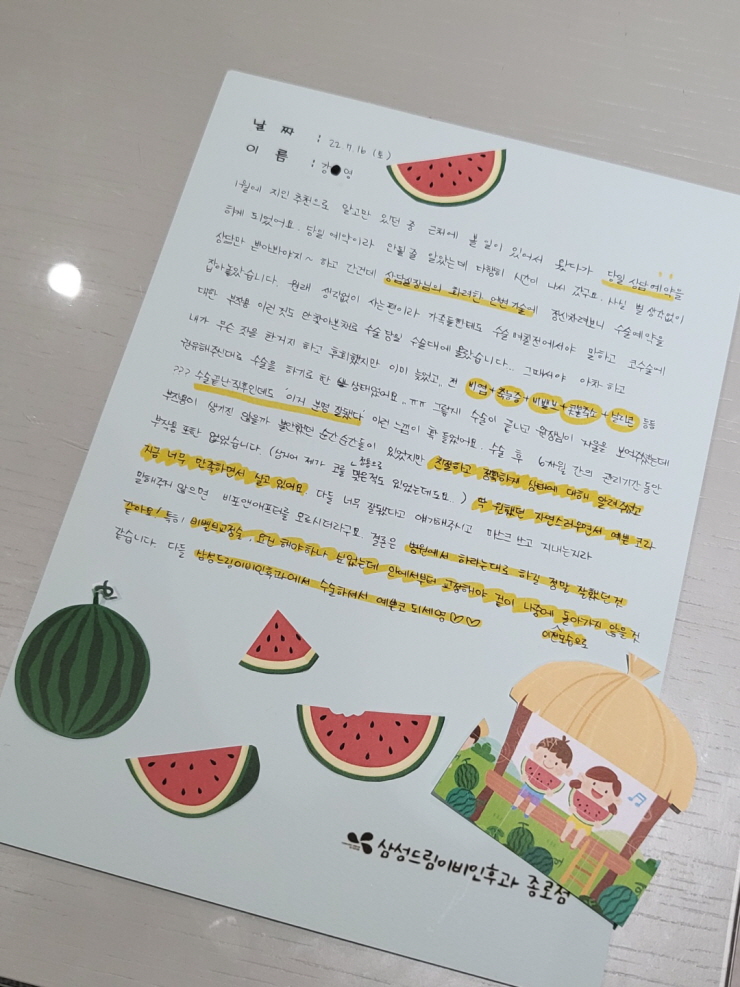 날 짜 : 22.7.16 (토)
이 름 : 강 영
1월에 지인 추천으로 알고만 있던 중 근처에 볼 일이 있어서 왔다가 당일 상담예약을
하게 되었어요. 당일 예약이라 안될 줄 알았는데 다행히 시간이 나서 갔구요. 사실 별 생각없이
상담만 받아봐야지~ 하고 간건데 상담실장님의 화려한 언변기술에 정신차려보니 수술예약을
잡아놓았습니다. 원래 생각없이 사는편이라 가족들한테도 수술 며칠전에서야 말하고 코수술에
대한 부작용 이런것도 안찾아본채로 수술 당일 수술대에 올랐습니다.. 그때서야 아차 하고
내가 무슨 짓을 한거지 하고 후회했지만 이미 늦었고.. 전 비염+축농증+비밸브+ +실리콘 등등
권유해주신대로 수술을 하기로 한 상태였어요..ㅠㅠ 그렇게 수술이 끝나고 원장님이 거울을 보여주셨는데
>>> 수술끝난직후인데도 '이거 분명 잘됐다' 이런 느낌이 확 들었어요. 수술 후 6개월 간의 관리기간동안
부작용이 생기진 않을까 불안했던 순간순간들이 있었지만 친절하고 정확하게 상태에 대해 알려주셨고
부작용 또한 없었습니다 (심지어 제가 코를 정통으로 맞은적도 있었는데도요..) 딱 원했던 자연스러우면서 예쁜 코라
지금 너무 만족하면서 살고 있어요. 다들 너무 잘됐다고 얘기해주시고 마스크 쓰고 지내는지라
말해주지 않으면 비포앤애프터를 모르시더라구요. 결론은 병원에서 하라는대로 하길 정말 잘했던 것
같아요! 특히 비밸브교정술, 요건 해야하나 싶었는데 안에서부터 교정해야 겉이 나중에 돌아가지 않을 것
이전모습으로
같습니다. 다들 삼성드림이비인후과에서 수술하셔서 예쁜코 되세영♡♡
삼성드림이비인후과 종로점